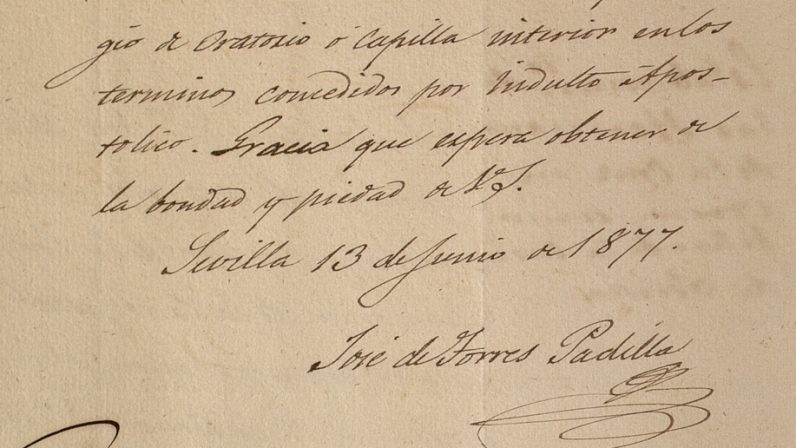 gio de Oratorio ó Capilla interior en los
terminos concedidos por Indulto Apos-
tolico. Gracia que espera obtener de
la bondad y piedad de V. S.
Sevilla 13 de Junio de 1877.
José de Torres Padilla